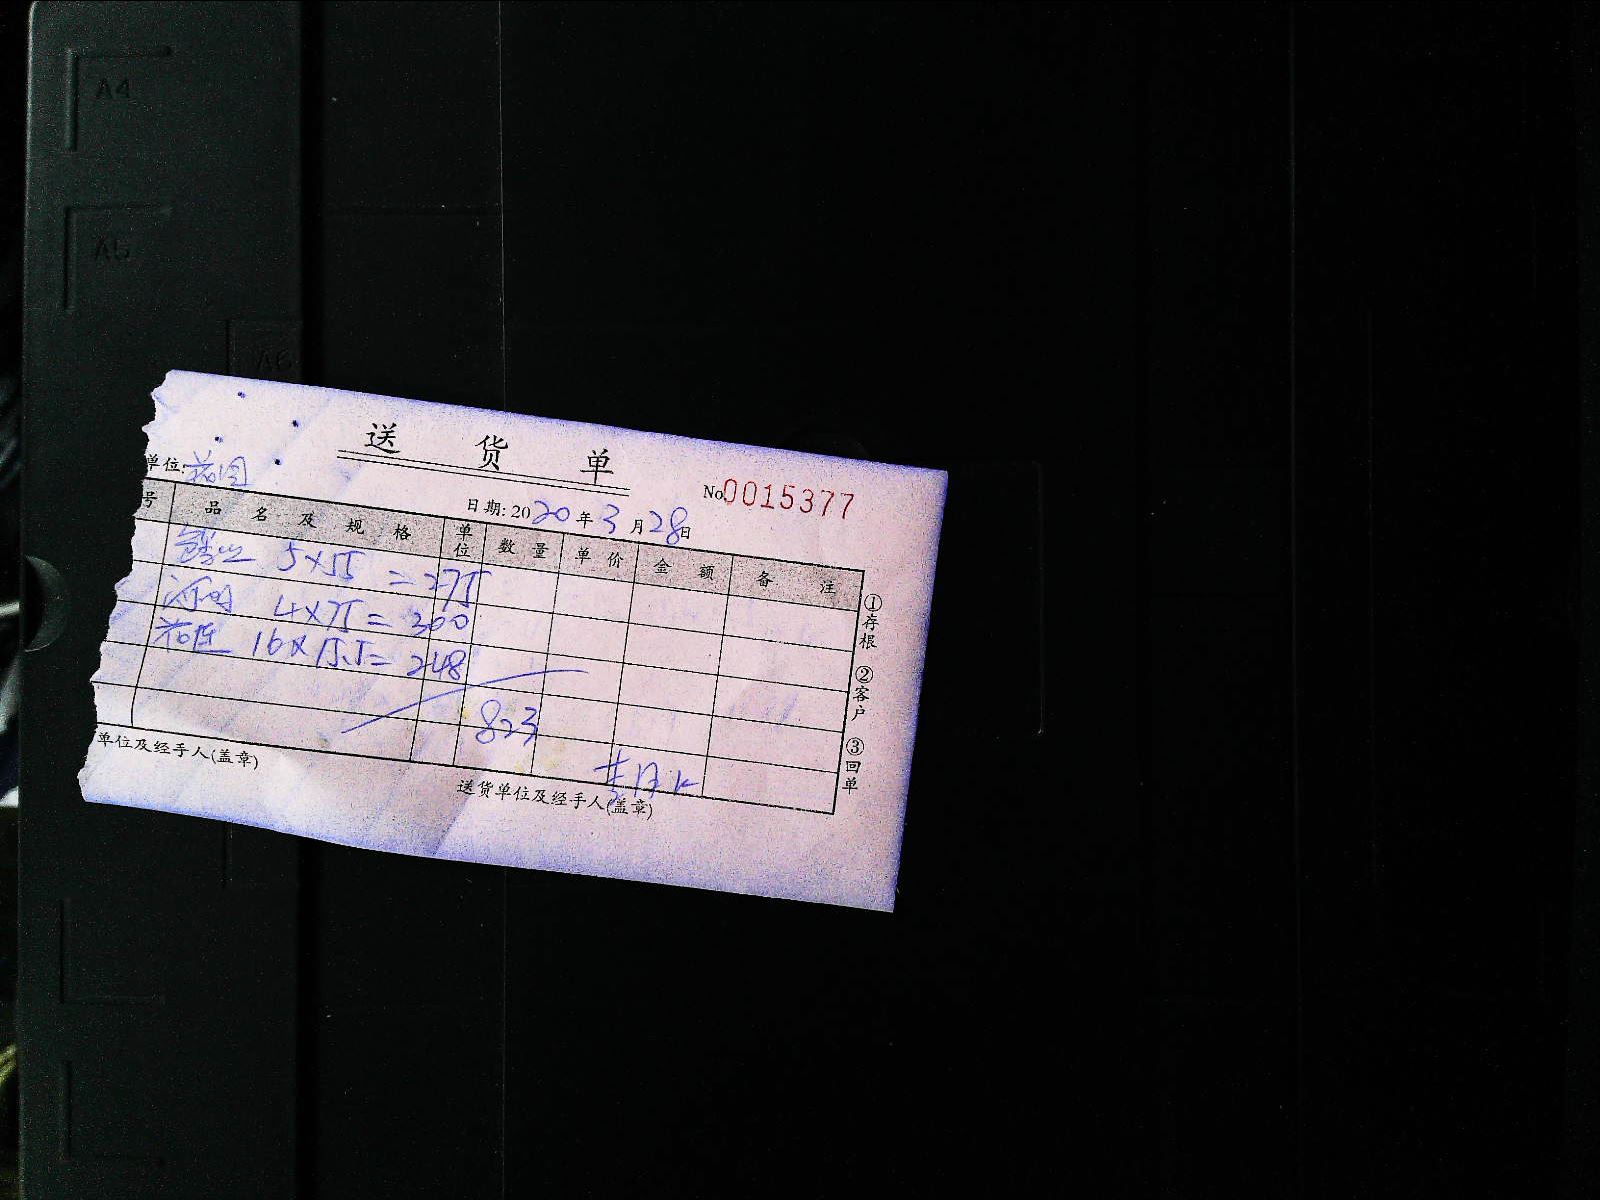 A4
A5
A6
送货单
单位:
No.0015377
日期: 2020年3月28日
号 品名及规格 单位 数量 单价 金额 备注
5×55 =275
4×75= 300
16×15.5= 248
823
①存根 ②客户 ③回单
单位及经手人(盖章)
送货单位及经手人(盖章)